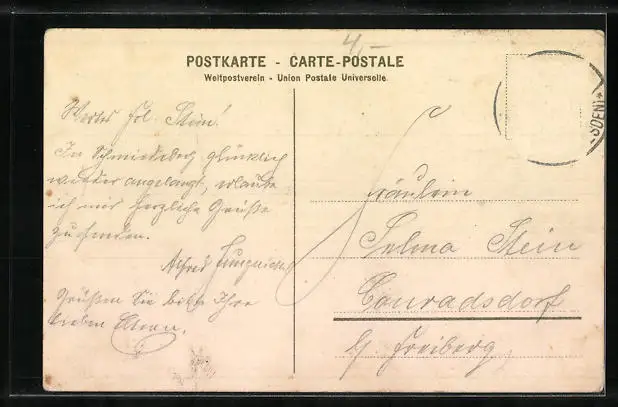 4,-
POSTKARTE - CARTE-POSTALE
Weltpostverein - Union Postale Universelle
-SDEN
Wertes Frl. Stein!
In Schmiedeberg glücklich
wieder angelangt, erlaube
ich mir herzliche Grüße
zusenden.
Alfred
Grüßen Sie bitte Ihre
lieben Eltern.
Fräulein
Selma Stein
Conradsdorf
b/ Freiberg